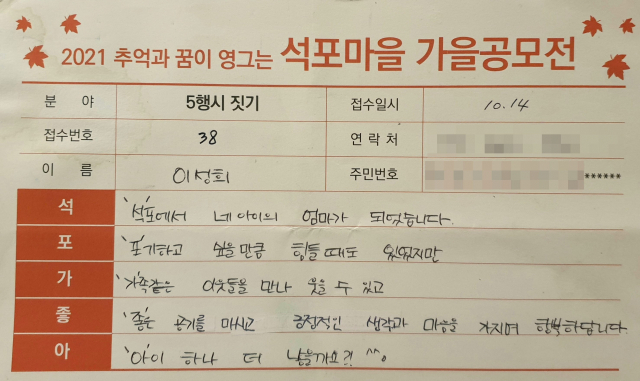 2021 추억과 꿈이 영그는 석포마을 가을공모전
분 야 5행시 짓기 접수일시 10.14
접수번호 38 연 락 처
이 름 이성희 주민번호 ******
석 '석'포에서 네 아이의 엄마가 되었습니다.
포 '포'기하고 싶을 만큼 힘들 때도 있었지만
가 '가'족같은 이웃들을 만나 웃을 수 있고
좋 '좋'은 공기를 마시고 긍정적인 생각과 마음을 가지며 행복하답니다.
아 '아'이 하나 더 낳을까요?! ^^。